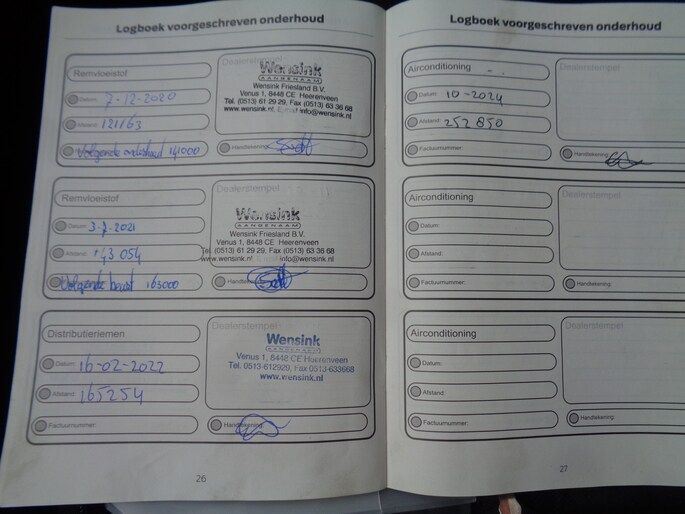 Logboek voorgeschreven onderhoud
Remvloeistof
Datum: 7-12-2020
Afstand: 121163
Volgende 141000
Dealerstempel
Wensink
AANGENAAM
Wensink Friesland B.V.
Venus 1, 8448 CE Heerenveen
Tel. (0513) 61 29 29, Fax (0513) 63 36 68
www.wensink.nl, E-mail info@wensink.nl
Handtekening:
Remvloeistof
Datum: 3-7-2021
Afstand: 143 054
Volgende beurt 163000
Wensink
AANGENAAM
Wensink Friesland B.V.
Venus 1, 8448 CE Heerenveen
Tel. (0513) 61 29 29, Fax (0513) 63 36 68
www.wensink.nl, E-mail info@wensink.nl
Distributieriemen
Datum: 16-02-2022
Afstand: 165254
Factuurnummer:
Dealerstempel
Wensink
AANGENAAM
Venus 1, 8448 CE Heerenveen
Tel. 0513-612929, Fax 0513-633668
www.wensink.nl
Handtekening:
26
Logboek voorgeschreven onderhoud
Airconditioning
Datum: 10-2024
Afstand: 252 850
Factuurnummer:
Dealerstempel
Handtekening:
Airconditioning
Datum:
Afstand:
Factuurnummer:
Dealerstempel
Handtekening:
Airconditioning
Datum:
Afstand:
Factuurnummer:
Dealerstempel
Handtekening:
27